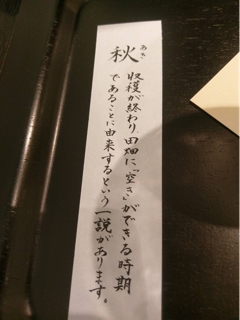 秋
あき
収穫が終わり田畑に「空き」ができる時期
であることに由来するという一説があります。